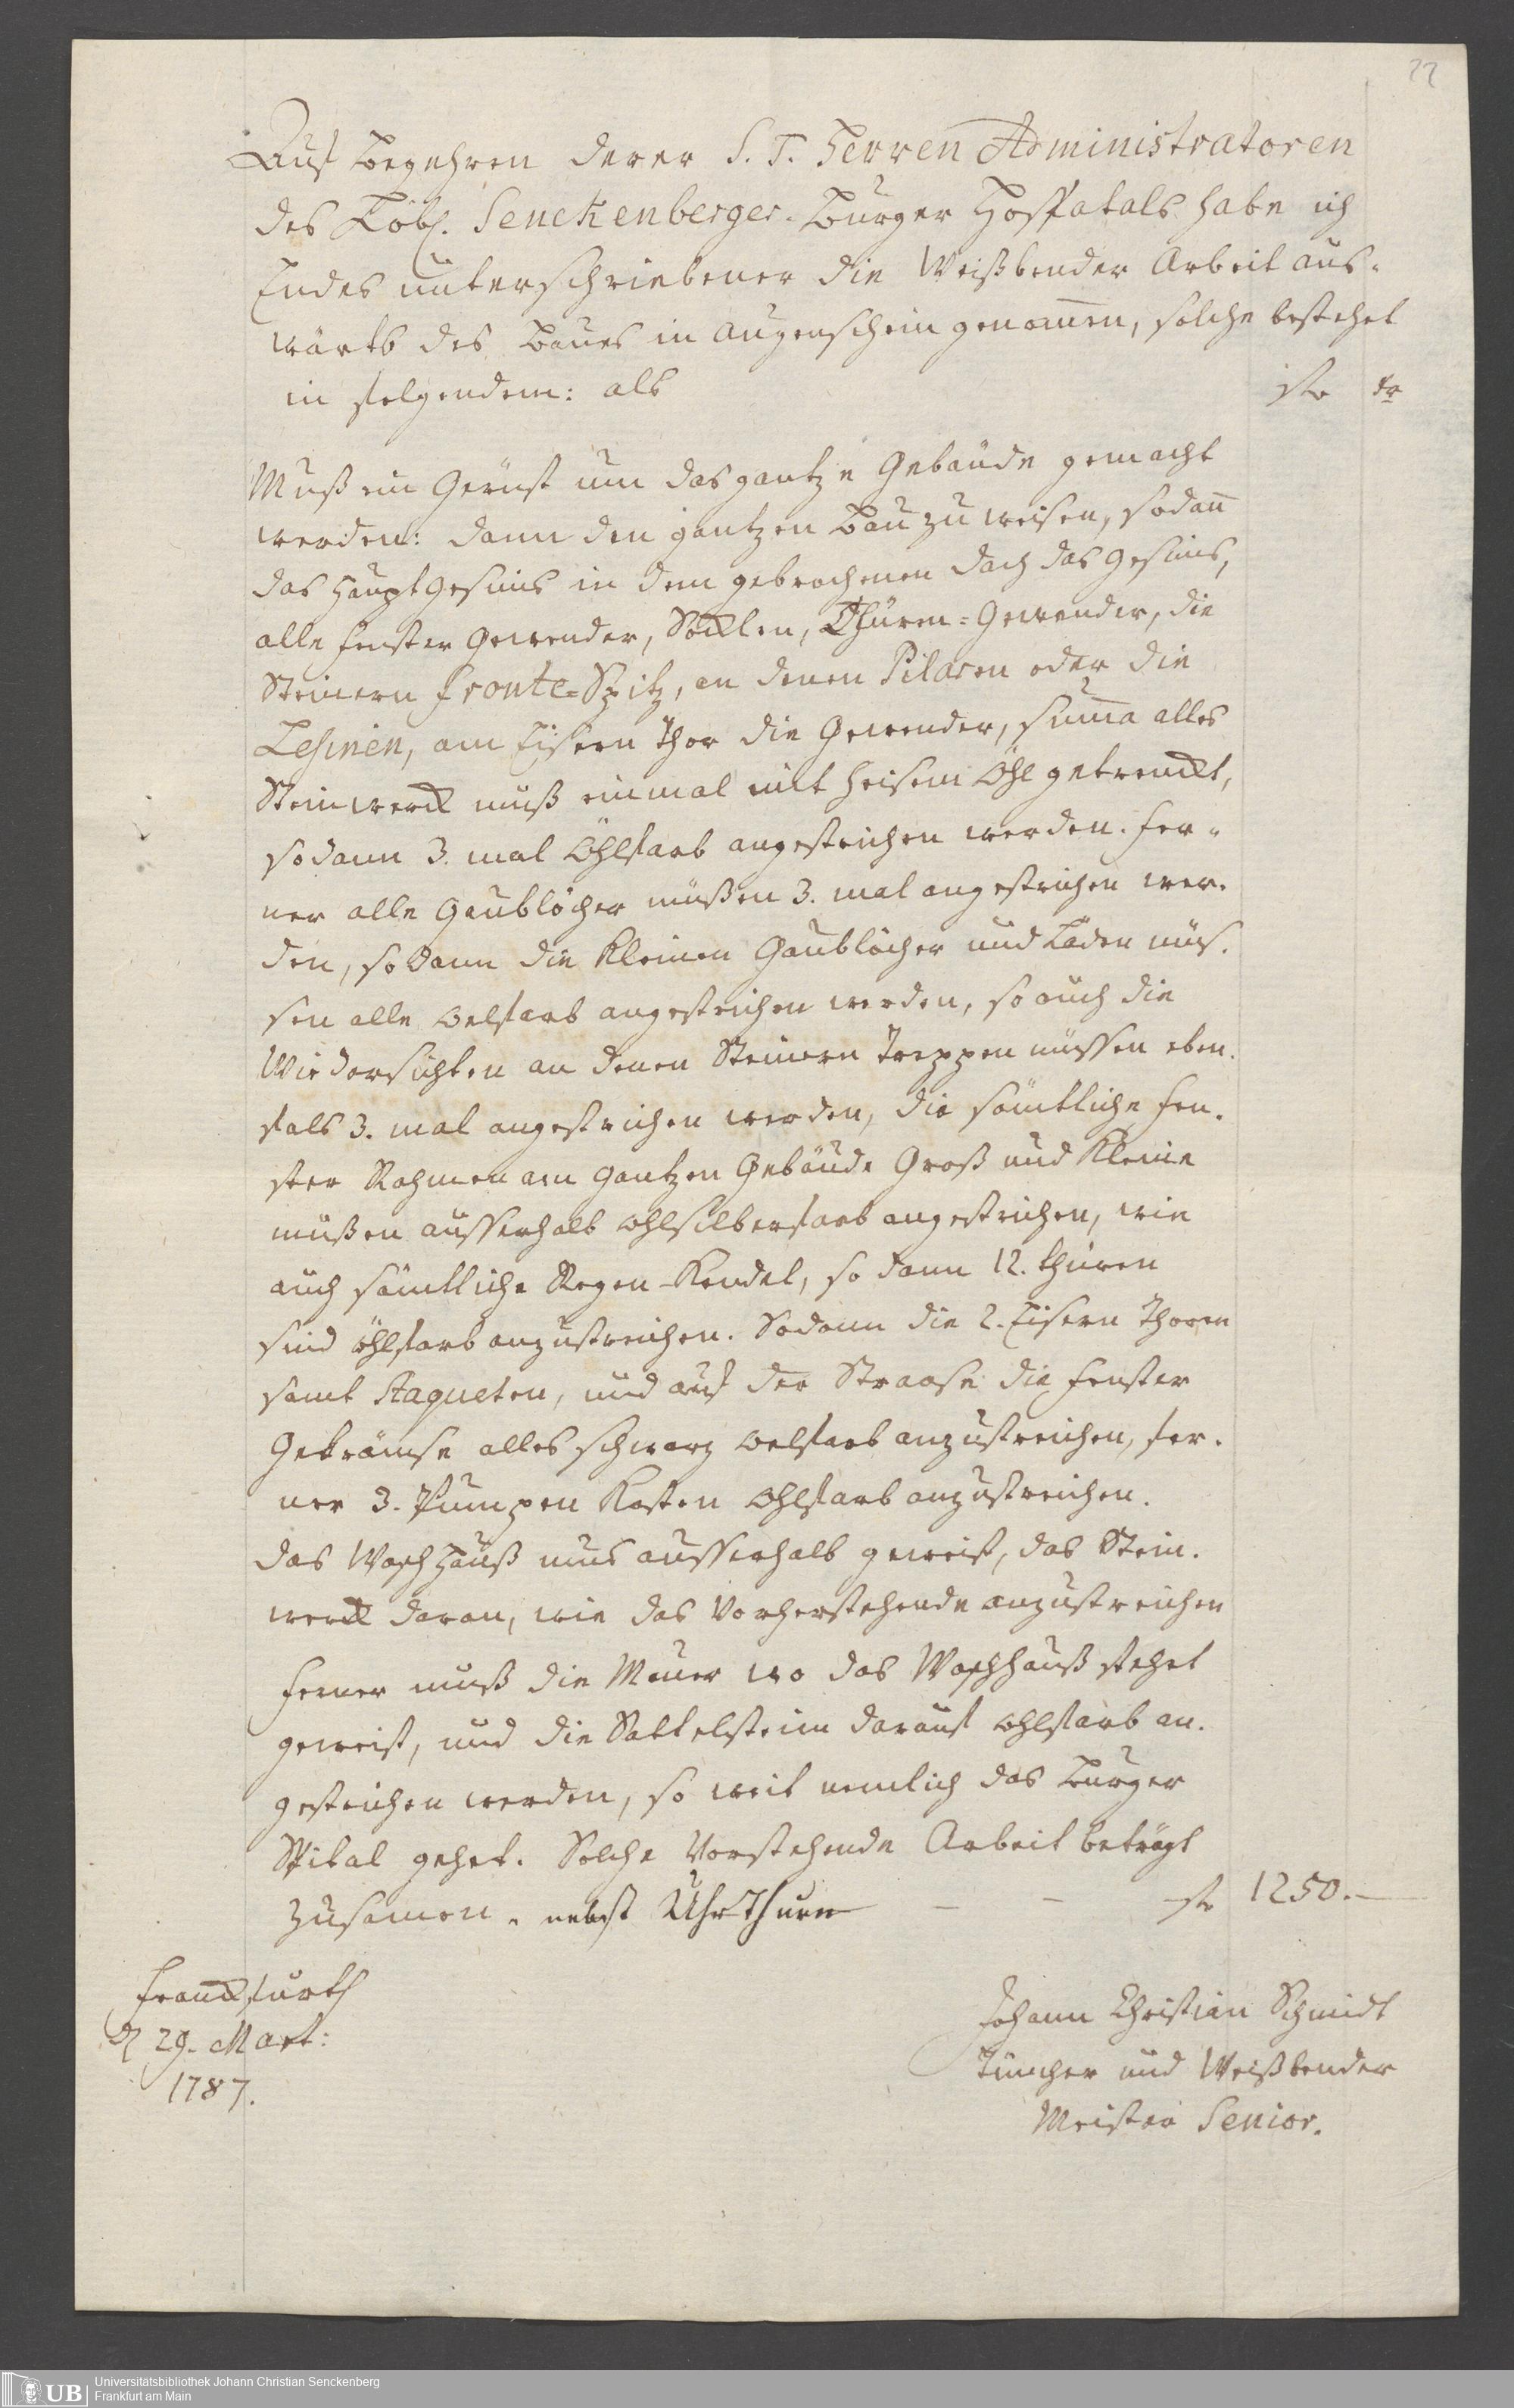 22
Auf begehren derer S. T. Herren Administratoren
des Löbl. Senckenberger. Burger Hospatals habe ich
Endes unterschriebener die Weißbender Arbeit aus-
wärts des Baues in augenschein genom̄en, solche bestehet
in folgendem: als
fl. xr
Muß ein Gerüst um das gantze Gebäude gemacht
werden: dann den gantzen Bau zu weisen, sodan̄
das Haupt Gesims in dem gebrochenen dach das gesims,
alle fenster Gewender, Socklen, Thüren-Gewender, die
Steinern fronte-Spitz, an denen Pilaren oder die
Lesinen, am Eisern Thor die Gewender, sum̄a alles
Steinwerck muß einmal mit heisem Öhl getrenckt,
sodann 3. mal Öhlfarb angestrichen werden. fer-
ner alle Gaublöcher müßen 3. mal angestrichen wer-
den, so dann die Kleinen Gaublöcher und Läden müs-
sen alle Oelfarb angestrichen werden, so auch die
Wiedersichten an denen Steinern Treppen müssen eben-
fals 3. mal angestrichen werden, die sämtliche fen-
ster Rahmen am gantzen Gebäude Groß und Kleine
müßen ausserhalb Ohlsilberfarb angestrichen, wie
auch sämtliche Regen-Kendel, so dann 12. thüren
sind öhlfarb anzustreichen. Sodann die 2. Eisern Thoren
samt Staqueten, und auf der Straase die fenster
Gekrämse alles schwarz Oelfarb anzustreichen, fer-
ner 3. Pumpen Kasten Ohlfarb anzustreichen.
das Wasch Hauß mus ausserhalb geweist, das Stein-
werck daran, wie das Vorherstehende anzustreichen
ferner muß die Mauer wo das Waschhauß stehet
geweist, und die Sattelstein darauf Ohlfarb an-
gestrichen werden, so weit nemlich das Burger
Spital gehet. Solche Vorstehende Arbeit beträgt
zusamen. nebst Uhr Thurn — — fl. 1250.—
Franckfurth
d 29. Mart:
1787.
Johann Christian Schmidt
Tüncher und Weißbender
Meister Senior.
UB
Universitätsbibliothek Johann Christian Senckenberg
Frankfurt am Main